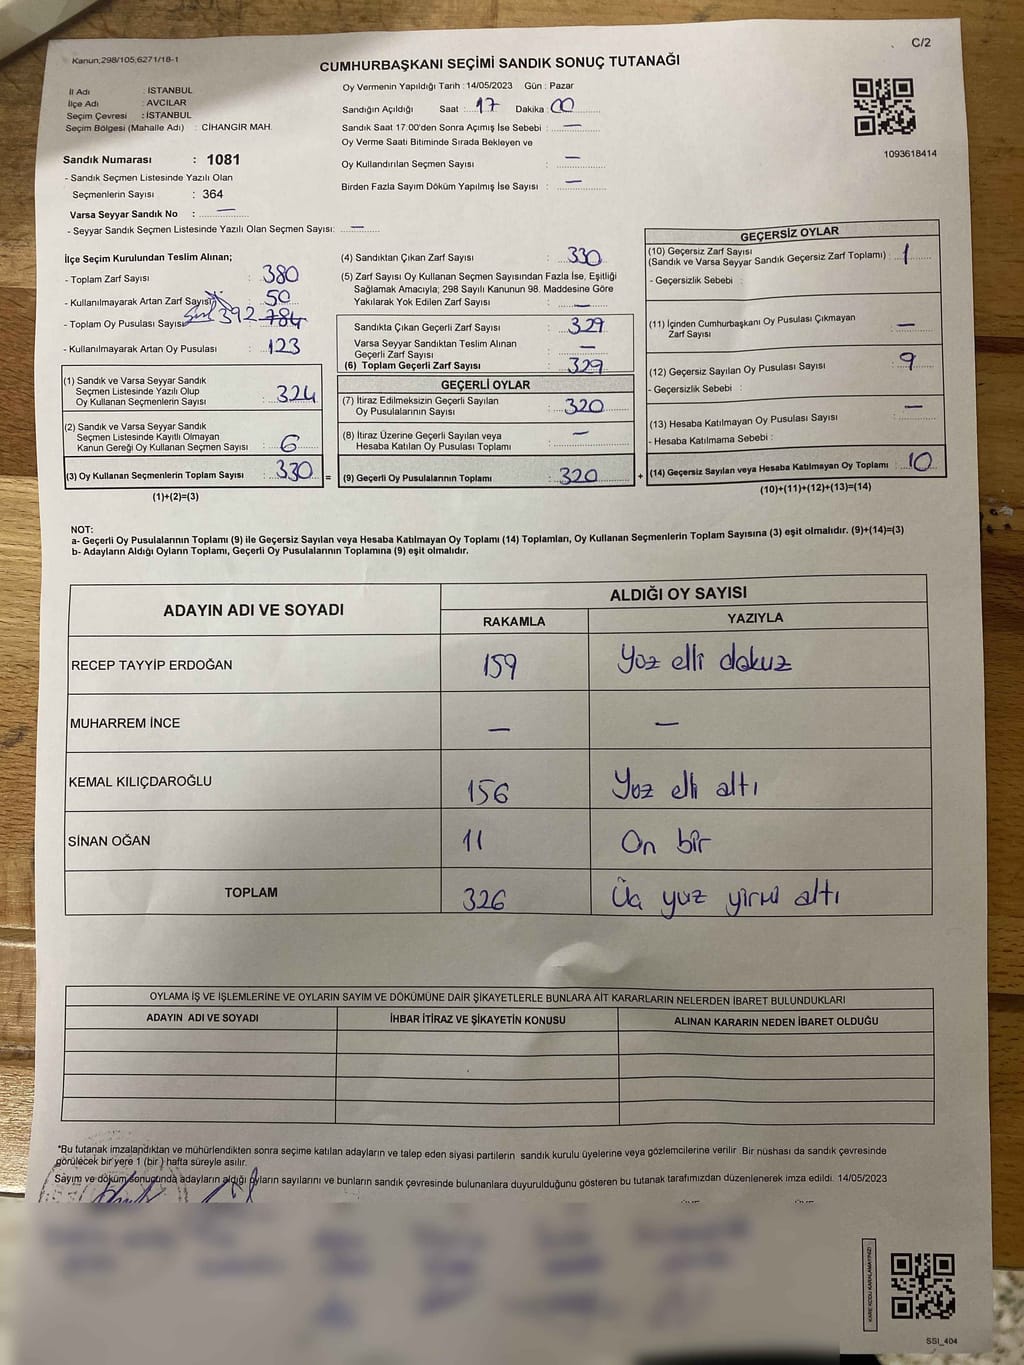 C/2
Kanun;298/105;6271/18-1
CUMHURBAŞKANI SEÇİMİ SANDIK SONUÇ TUTANAĞI
İl Adı : İSTANBUL
İlçe Adı : AVCILAR
Seçim Çevresi : İSTANBUL
Seçim Bölgesi (Mahalle Adı) : CİHANGİR MAH.
Sandık Numarası : 1081
- Sandık Seçmen Listesinde Yazılı Olan
Seçmenlerin Sayısı : 364
Varsa Seyyar Sandık No : —
- Seyyar Sandık Seçmen Listesinde Yazılı Olan Seçmen Sayısı: —
Oy Vermenin Yapıldığı Tarih : 14/05/2023 Gün : Pazar
Sandığın Açıldığı Saat : 17 Dakika : 00
Sandık Saat 17:00'den Sonra Açımış İse Sebebi : —
Oy Verme Saati Bitiminde Sırada Bekleyen ve
Oy Kullandırılan Seçmen Sayısı : —
Birden Fazla Sayım Döküm Yapılmış İse Sayısı : —
1093618414
İlçe Seçim Kurulundan Teslim Alınan;
- Toplam Zarf Sayısı : 380
- Kullanılmayarak Artan Zarf Sayısı : 50
- Toplam Oy Pusulası Sayısı 392 784
- Kullanılmayarak Artan Oy Pusulası : 123
(1) Sandık ve Varsa Seyyar Sandık
Seçmen Listesinde Yazılı Olup
Oy Kullanan Seçmenlerin Sayısı : 324
(2) Sandık ve Varsa Seyyar Sandık
Seçmen Listesinde Kayıtlı Olmayan
Kanun Gereği Oy Kullanan Seçmen Sayısı : 6
(3) Oy Kullanan Seçmenlerin Toplam Sayısı : 330 =
(1)+(2)=(3)
(4) Sandıktan Çıkan Zarf Sayısı : 330
(5) Zarf Sayısı Oy Kullanan Seçmen Sayısından Fazla İse, Eşitliği
Sağlamak Amacıyla; 298 Sayılı Kanunun 98. Maddesine Göre
Yakılarak Yok Edilen Zarf Sayısı : —
Sandıkta Çıkan Geçerli Zarf Sayısı : 329
Varsa Seyyar Sandıktan Teslim Alınan
Geçerli Zarf Sayısı : —
(6) Toplam Geçerli Zarf Sayısı : 329
GEÇERLİ OYLAR
(7) İtiraz Edilmeksizin Geçerli Sayılan
Oy Pusulalarının Sayısı : 320
(8) İtiraz Üzerine Geçerli Sayılan veya
Hesaba Katılan Oy Pusulası Toplamı : —
(9) Geçerli Oy Pusulalarının Toplamı : 320 +
GEÇERSİZ OYLAR
(10) Geçersiz Zarf Sayısı
(Sandık ve Varsa Seyyar Sandık Geçersiz Zarf Toplamı) : 1
- Geçersizlik Sebebi :
(11) İçinden Cumhurbaşkanı Oy Pusulası Çıkmayan
Zarf Sayısı : —
(12) Geçersiz Sayılan Oy Pusulası Sayısı : 9
- Geçersizlik Sebebi :
(13) Hesaba Katılmayan Oy Pusulası Sayısı : —
- Hesaba Katılmama Sebebi :
(14) Geçersiz Sayılan veya Hesaba Katılmayan Oy Toplamı : 10
(10)+(11)+(12)+(13)=(14)
NOT:
a- Geçerli Oy Pusulalarının Toplamı (9) ile Geçersiz Sayılan veya Hesaba Katılmayan Oy Toplamı (14) Toplamları, Oy Kullanan Seçmenlerin Toplam Sayısına (3) eşit olmalıdır. (9)+(14)=(3)
b- Adayların Aldığı Oyların Toplamı, Geçerli Oy Pusulalarının Toplamına (9) eşit olmalıdır.
ADAYIN ADI VE SOYADI
ALDIĞI OY SAYISI
RAKAMLA YAZIYLA
RECEP TAYYİP ERDOĞAN 159 Yüz elli dokuz
MUHARREM İNCE — —
KEMAL KILIÇDAROĞLU 156 Yüz elli altı
SİNAN OĞAN 11 On bir
TOPLAM 326 Üç yüz yirmi altı
OYLAMA İŞ VE İŞLEMLERİNE VE OYLARIN SAYIM VE DÖKÜMÜNE DAİR ŞİKAYETLERLE BUNLARA AİT KARARLARIN NELERDEN İBARET BULUNDUKLARI
ADAYIN ADI VE SOYADI İHBAR İTİRAZ VE ŞİKAYETİN KONUSU ALINAN KARARIN NEDEN İBARET OLDUĞU
*Bu tutanak imzalandıktan ve mühürlendikten sonra seçime katılan adayların ve talep eden siyasi partilerin sandık kurulu üyelerine veya gözlemcilerine verilir. Bir nüshası da sandık çevresinde
görülecek bir yere 1 (bir ) hafta süreyle asılır.
Sayım ve döküm sonucunda adayların aldığı oyların sayılarını ve bunların sandık çevresinde bulunanlara duyurulduğunu gösteren bu tutanak tarafımızdan düzenlenerek imza edildi. 14/05/2023
KARE KODU KARALAMAYINIZ!
SSI_404